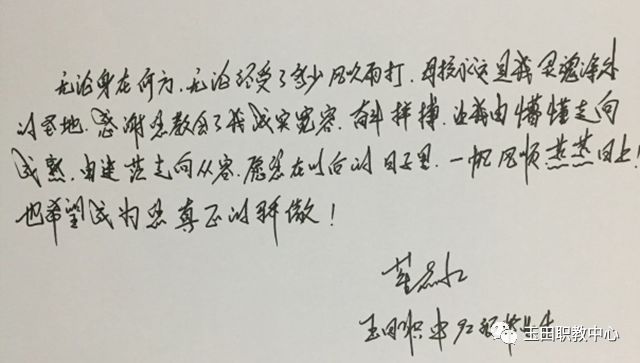 无论身在何方，无论经受了多少风吹雨打，母校永远是我灵魂净外
的圣地。感谢您教会了我诚实宽容，奋斗拼搏，让我由懵懂走向
成熟，由迷茫走向从容。愿您在以后的日子里，一帆风顺蒸蒸日上！
也希望成为您真正的骄傲！
玉田职中
玉田职教中心